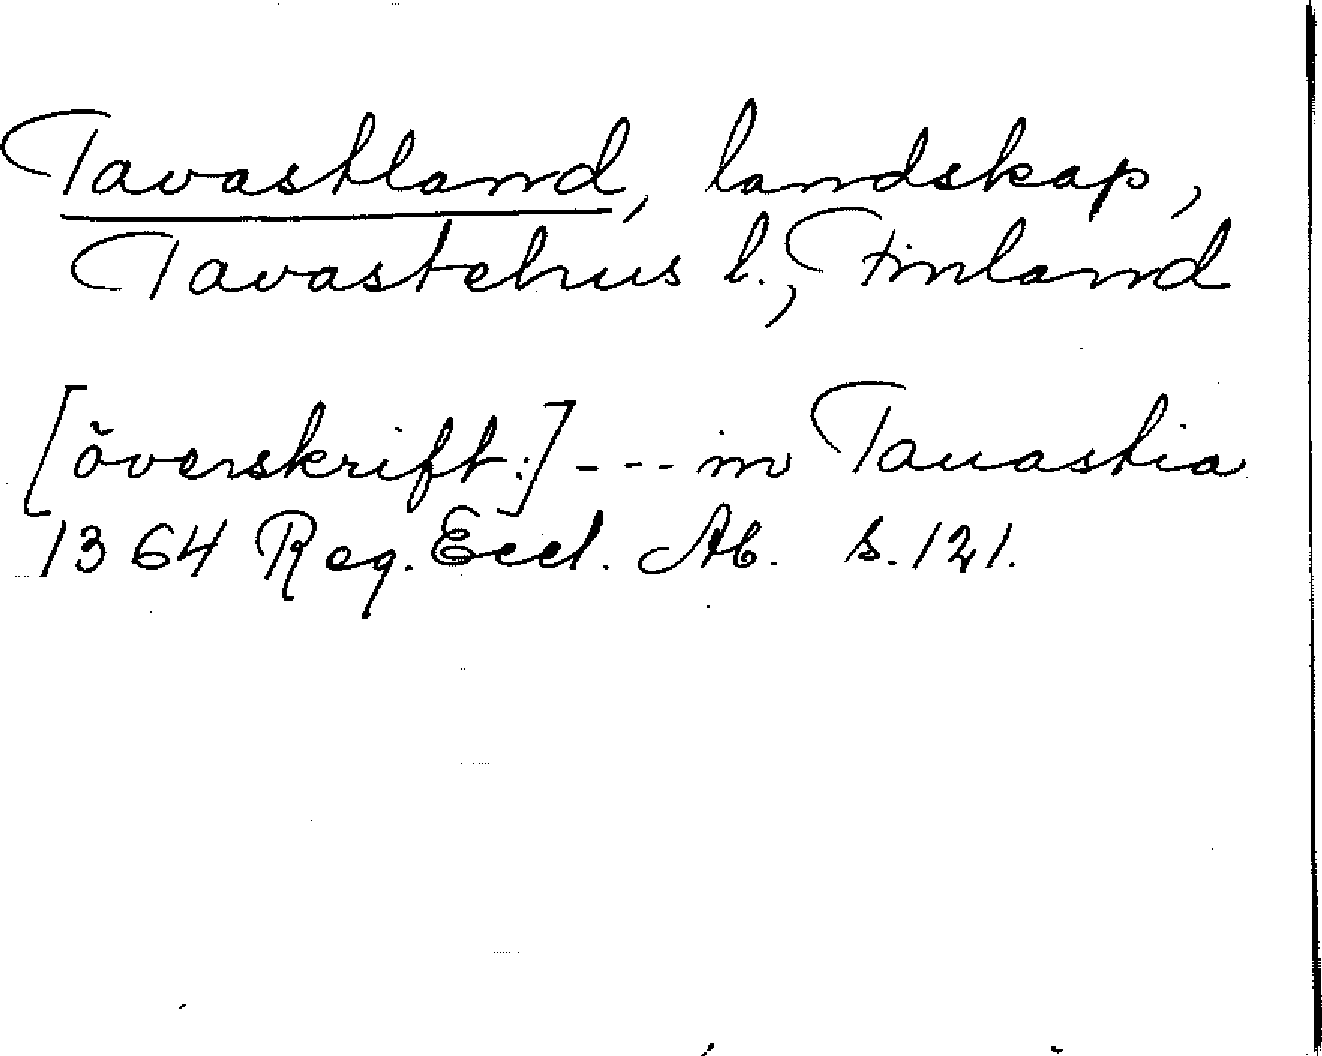 Tavastland, landskap,
Tavastehus l., Finland
[överskrift:] --- in Tauastia
1364 Reg. Eccl. Ab. s. 121.